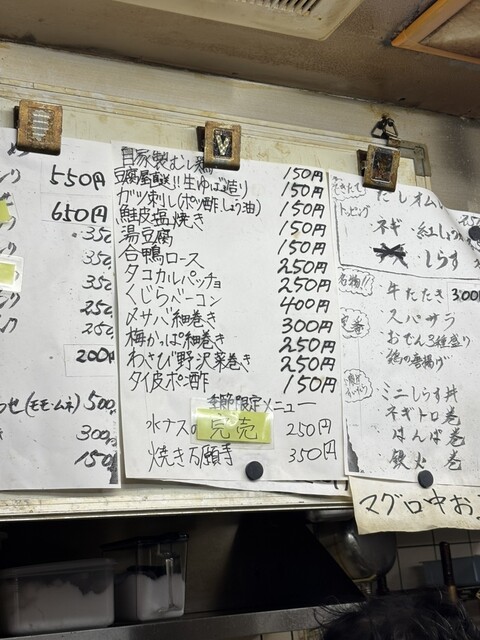 550円
650円
350
350
350
250
250
200円
(モモ・ムネ) 500
300
150
自家製むし鶏 150円
豆腐屋直送!!生ゆば造り 150円
ガツ刺し(ポン酢.しょう油) 150円
鮭皮塩焼き 150円
湯豆腐 150円
合鴨ロース 250円
タコカルパッチョ 250円
くじらベーコン 400円
〆サバ細巻き 300円
梅かっぱ細巻き 250円
わさび野沢菜巻き 250円
タイ皮ポン酢 150円
季節限定メニュー
水ナスの 完売 250円
焼き万願寺 350円
できたて だしオム
トッピング
ネギ・紅しょう
しらす
名物!! 牛たたき 300円
定番 スパサラ
おでん3種盛り
鶏の唐揚げ
ミニしらす丼
ネギトロ巻
鉄火 巻
マグロ中お